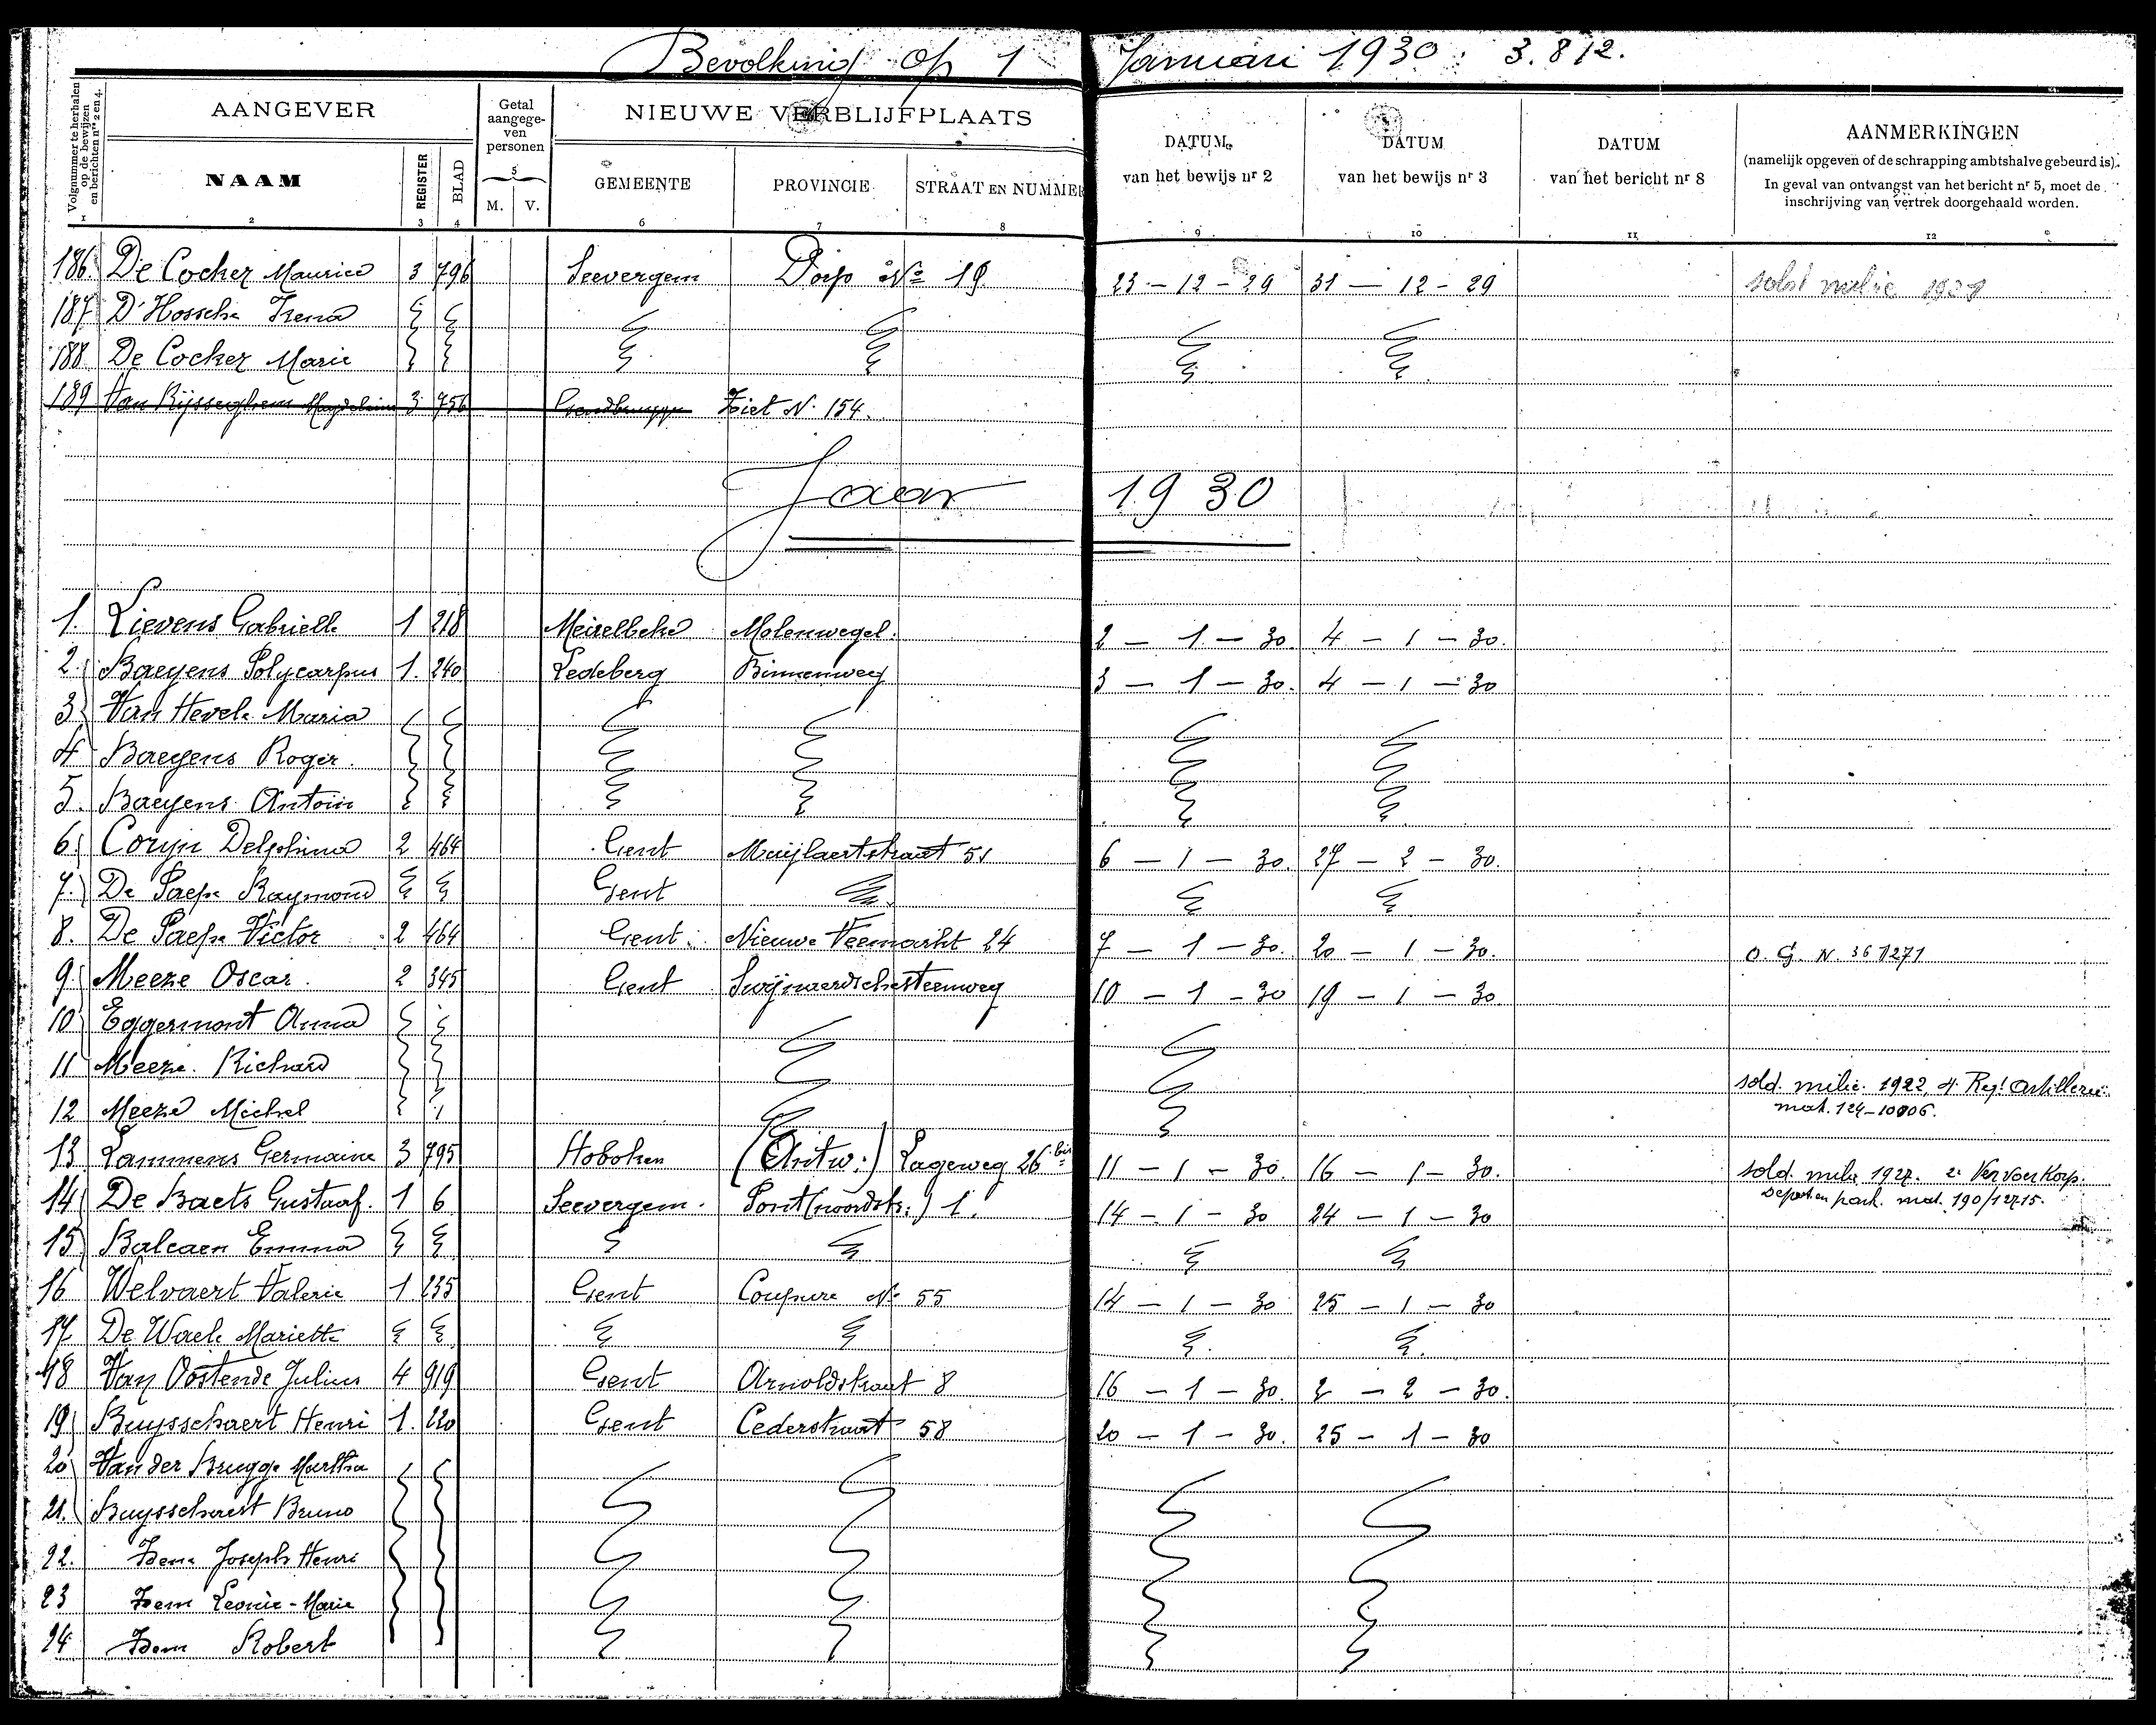 Bevolking op 1 Januari 1930 : 3.812.
Volgnummer te herhalen op de bewijzen en berichten nrs 2 en 4.
AANGEVER
Getal aangegeven personen
NIEUWE VERBLIJFPLAATS
DATUM van het bewijs nr 2
DATUM van het bewijs nr 3
DATUM van het bericht nr 8
AANMERKINGEN
(namelijk opgeven of de schrapping ambtshalve gebeurd is).
In geval van ontvangst van het bericht nr 5, moet de inschrijving van vertrek doorgehaald worden.
NAAM REGISTER BLAD M. V. GEMEENTE PROVINCIE STRAAT EN NUMMER
1 2 3 4 5 6 7 8 9 10 11 12
186. De Cocker Maurice 3 796 Seevergem Dorp No 19 23 - 12 - 29 31 - 12 - 29
187. D'Hossche Irena
188. De Cocker Marie
189 Van Rijsseghem Magdelein 3 756 Gendbrugge Ziet N. 154.
Jaar 1930
1. Lievens Gabrielle 1 218 Meirelbeke Molenwegel. 2 - 1 - 30. 4 - 1 - 30.
2. Baeyens Polycarpus 1. 240 Ledeberg Binnenweg 3 - 1 - 30. 4 - 1 - 30
3. Van Hevele Maria
4 Baeyens Roger.
5. Baeyens Antoin
6. Coryn Delphina 2 464 Gent Muijlaertstraat 51 6 - 1 - 30. 27 - 2 - 30.
7. De Paepe Raymond Gent
8. De Paepe Victor 2 464 Gent. Nieuwe Veemarkt 24 7 - 1 - 30. 20 - 1 - 30. O. G. N. 361271
9. Meeze Oscar. 2 345 Gent Swijnaerdschesteenweg 10 - 1 - 30 19 - 1 - 30
10 Eggermont Anna
11 Meeze. Richard sold. milic. 1922 4. Reg! Artillerie.
12 Meeze Michel mat. 124-10006.
13 Lammens Germaine 3 795 Hoboken (Antw.) Lageweg 26 bis 11 - 1 - 30. 16 - 1 - 30. sold. milic 1927. 2e Vervoer Korps.
14 De Baets Gustaaf. 1 6 Seevergem. Pont (noordstr.) 1. 14 - 1 - 30 24 - 1 - 30 Depot en park. mat. 190/12715.
15 Balcaen Emma
16 Welvaert Valerie 1 235 Gent Coupure No 55 14 - 1 - 30 25 - 1 - 30
17. De Waele Mariette
18 Van Oostende Julius 4 919 Gent Arnoldstraat 8 16 - 1 - 30. 2 - 2 - 30.
19 Buysschaert Henri 1. 220 Gent Cederstraat 58 20 - 1 - 30. 25 - 1 - 30
20 Van der Brugge Martha
21. Buysschaert Bruno
22. Idem Joseph Henri
23 Idem Leonie-Marie
24 Idem Robert